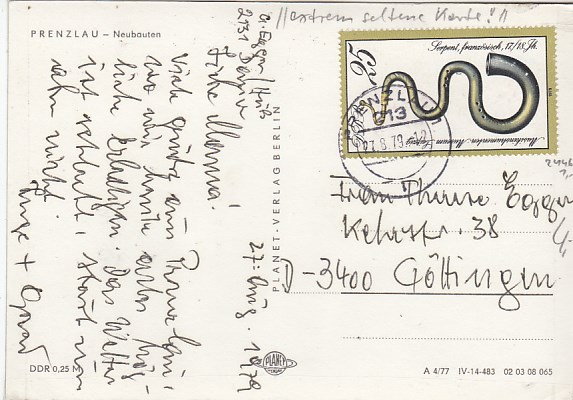 PRENZLAU – Neubauten
"extrem seltene Karte!"
2131
27. Aug. 1979
Liebe Mamma!
Viele Grüße aus Prenzlau,
wo wir heute
Das Wetter
ist schlecht, stört uns
aber nicht.
Inge +
PLANET-VERLAG BERLIN
25
DDR
Serpent, französisch, 17./18. Jh.
Musikinstrumenten-Museum Leipzig
1979
PRENZLAU
213
27.8.79-12
Frau Therese Egger
Kehrstr. 38
D-3400 Göttingen
DDR 0,25 M
PLANET
A 4/77 IV-14-483 02 03 08 065